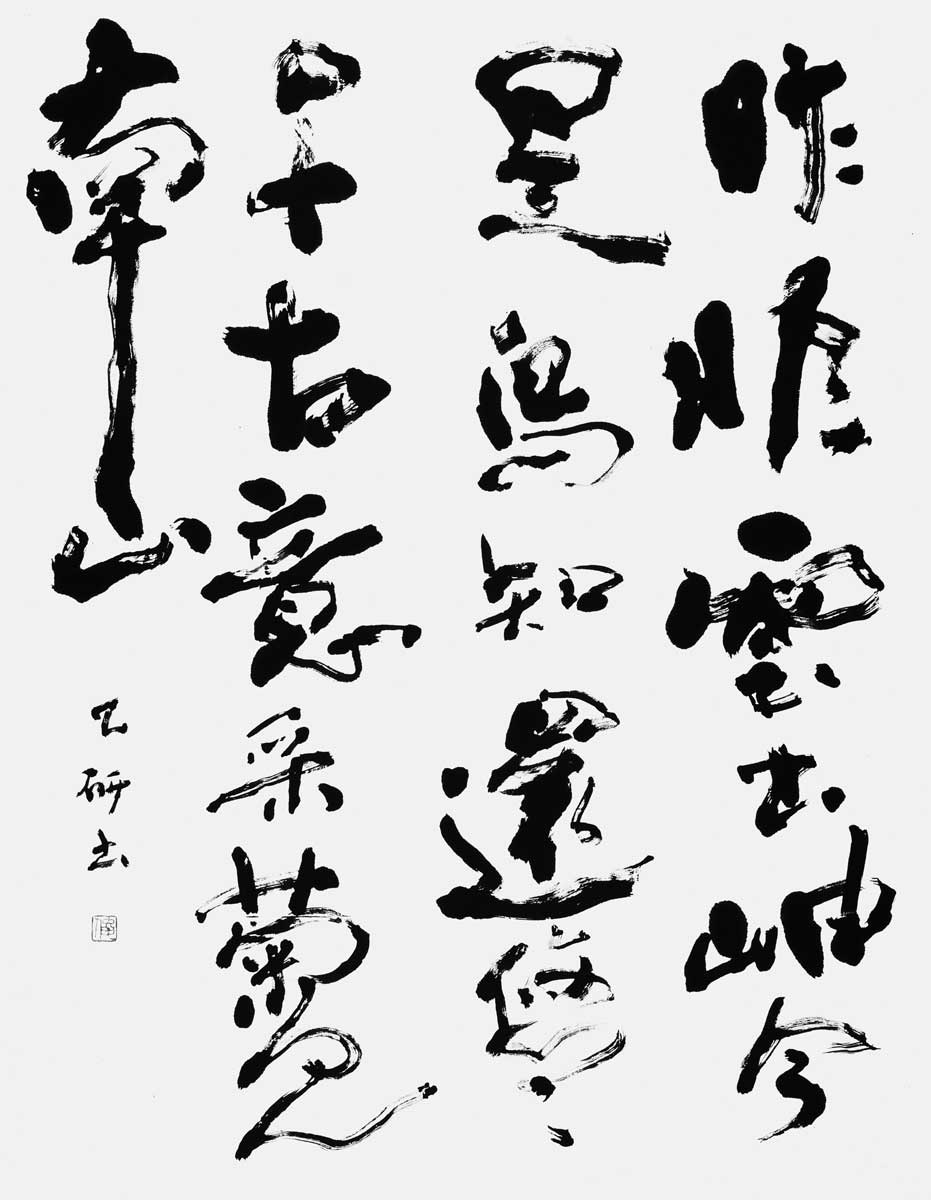 昨非雲出岫今
是鳥知還
千古意采菊見
南山
研書